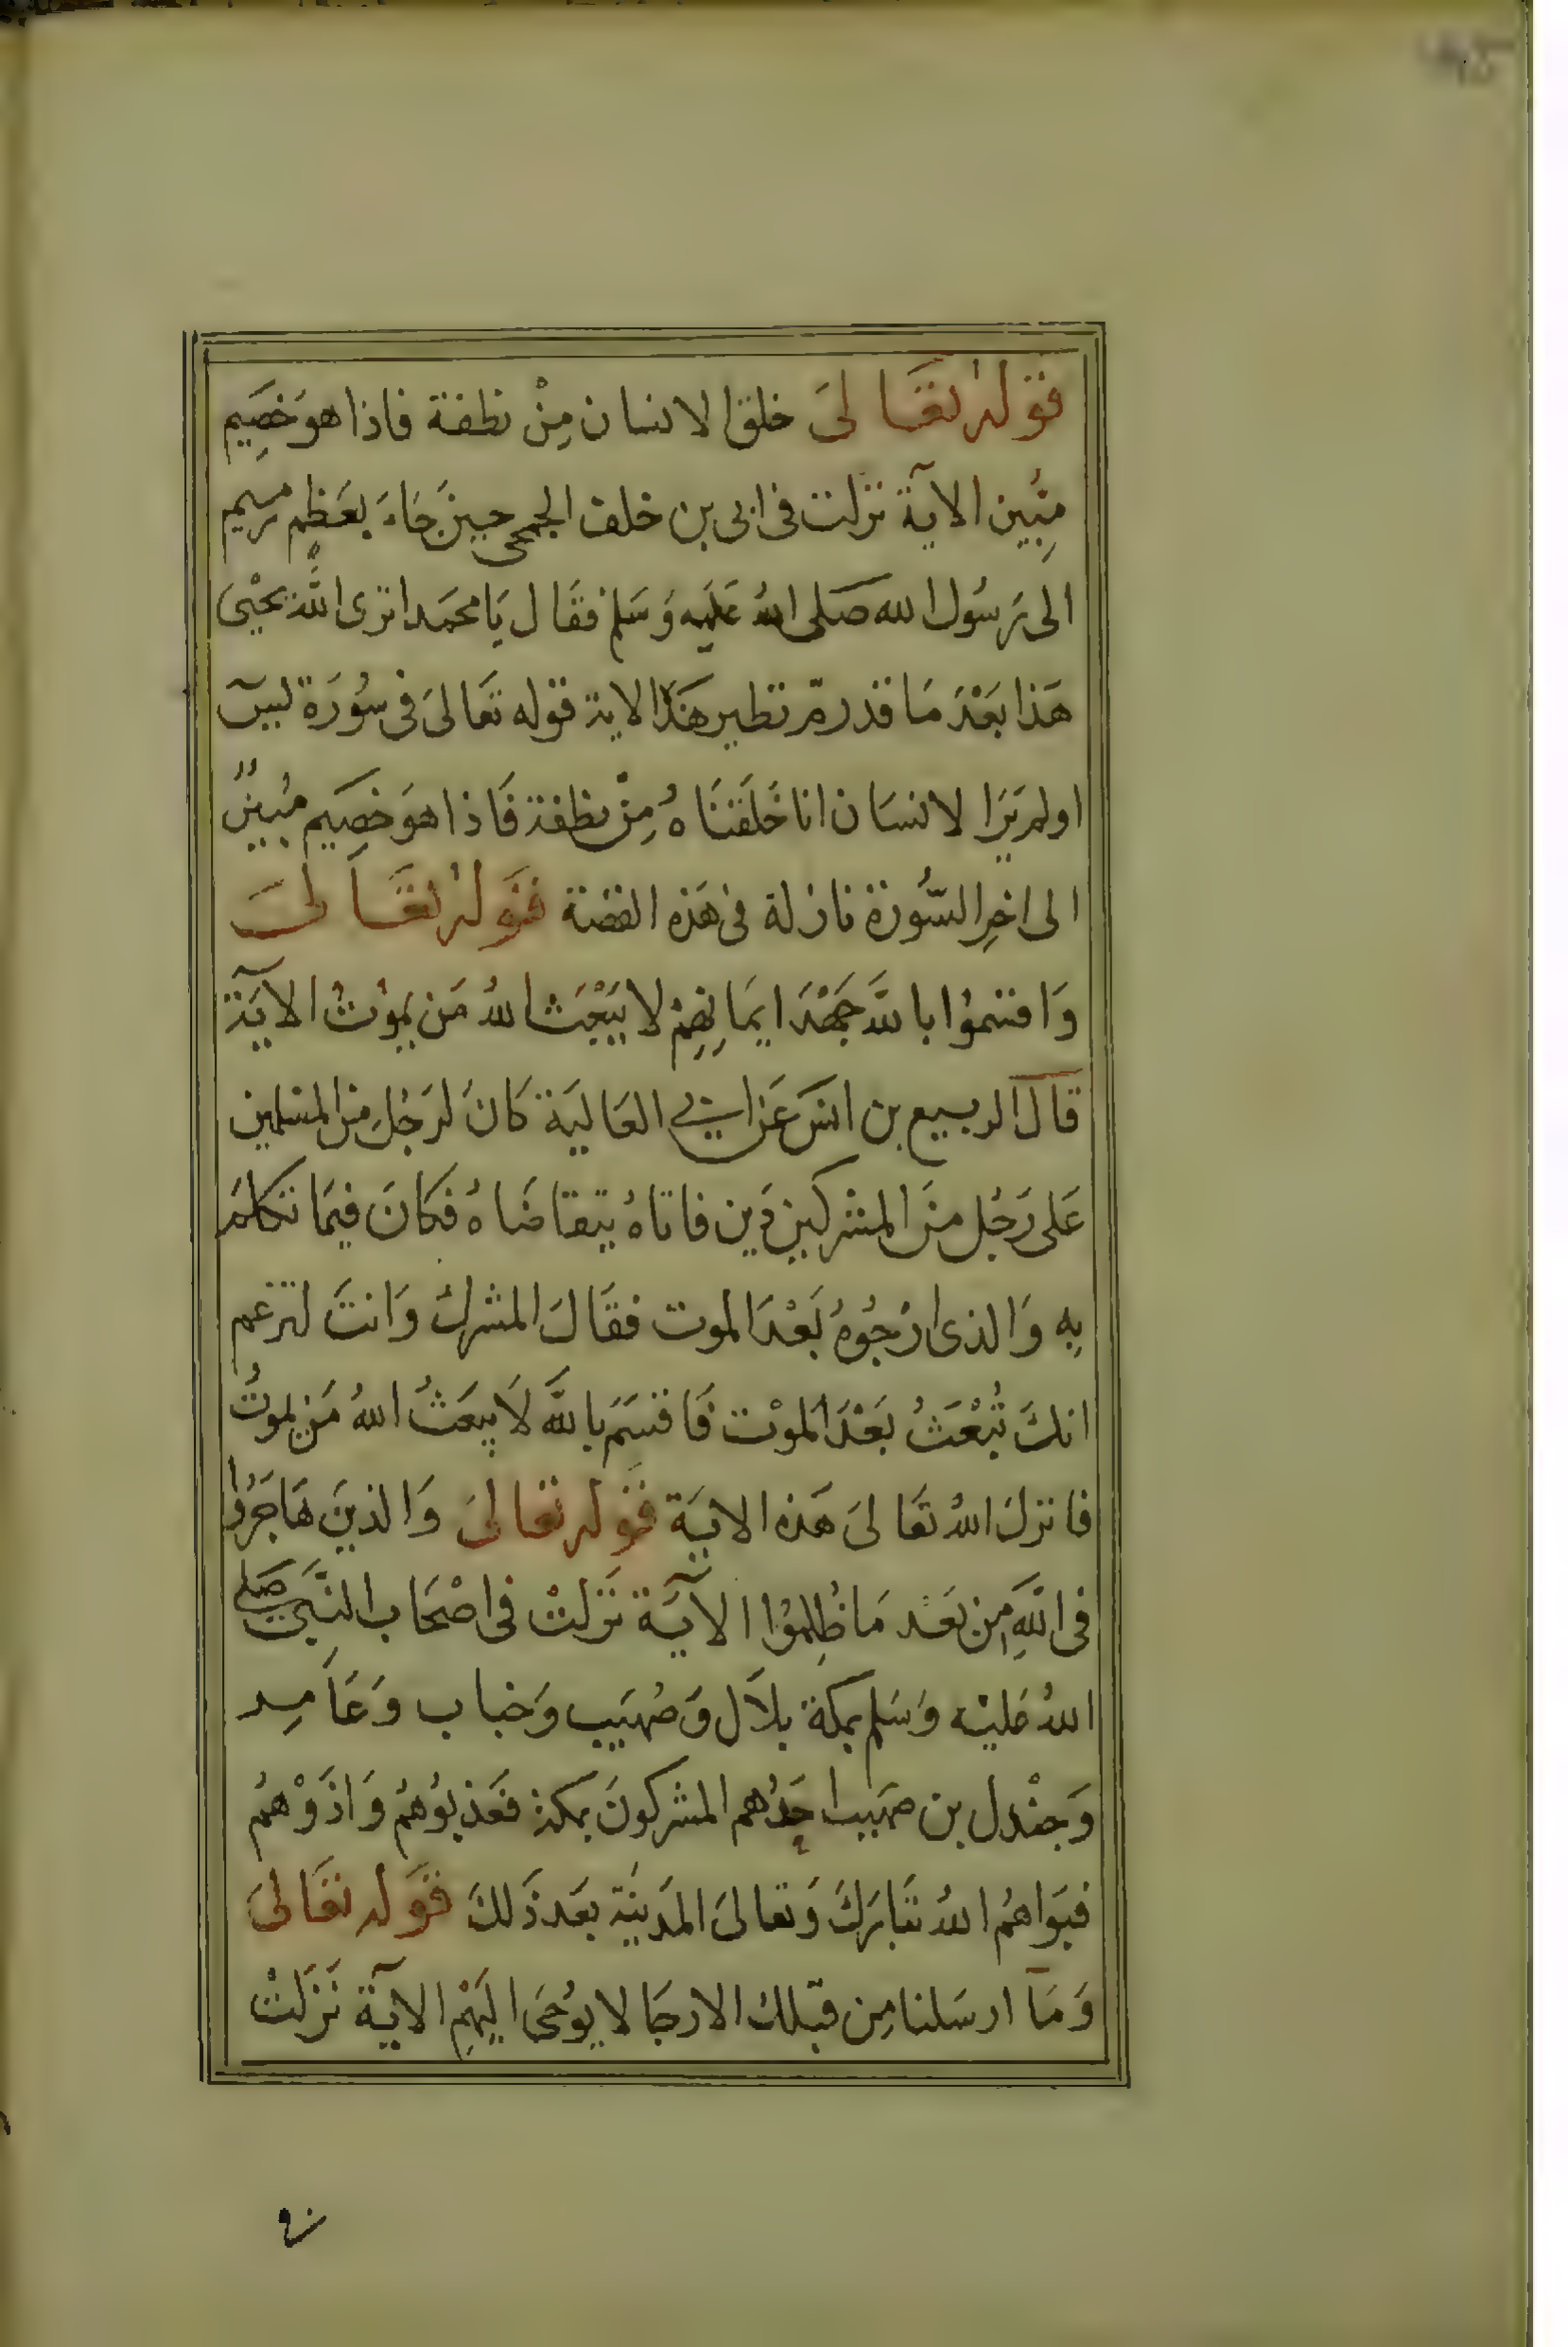 قوله تعالى خلق الانسان مِنْ نطفة فاذا هوَ خصِيم
مبُين الآية نزلت فى ابى بن خلف الجمحى حين جَاءَ بعَظِم رميم
الى رَسُول الله صَلى اللهُ عَليه وَسَلم فقَال يَا محمَد اترى اللهَ يحْيىَ
هَذا بَعْدَ مَا قد رمّ نظير هَذه الاية قوله تعَالىَ فى سُورَة يسۤ
اولم يَرَا لانسَان انا خَلقنَاهُ مِنْ نطفة فَاذا هوَ خصِيَم مبُينٌ
الى اخرِ السُّورة نازلة فى هَذه القصة قوَله تعَالىَ
وَاقسَموُا باللهَ جَهْدَ ايمَانِهِمْ لا يَبْعَث اللهُ مَن يموُتُ الآيَة
قال الربيع بن انسَ عَن ابي العَاليَة كانَ لرَجُلِ مِنَ المسْلمين
عَلى رَجُل منَ المشركين دَين فاتاهُ يتقاضَاهُ فكانَ فيمَا تكلمَ
بِه وَالذى ارْجُوهُ بَعْدَ الموت فقَالَ المشركُ وَانتَ لتزعم
انكَ تُبْعَثُ بَعْدَ الموْت فَاقسَمَ باللهَ لاَ يبعَثُ اللهُ مَن يموتُ
فانزلَ اللهُ تعَالىَ هَذه الايَة قوَله تعَالىَ وَالذينَ هَاجَرُوا
فى اللهِ مِن بَعَد مَا ظُلِموُا الآيَة نَزلتْ فى اصْحَاب النَّبَى صَلى
اللهُ عَليْه وَسَلم بمكة بلاَل وَصُهَيب وَخباب وَعَامِر
وَجنْدل بن صهَيب اخَذُهم المشركونَ بمكة فعَذبوُهمْ وَاذَوْهمُ
فبَوَاهمُ اللهُ تبَارَكَ وَتعالىَ المدَينَة بعَد ذَلكَ قوَله تعَالىَ
وَمَا ارسَلنا مِن قبْلك الا رجَا لا يوُحىَ اليَهْمِ الآية نَزَلتْ